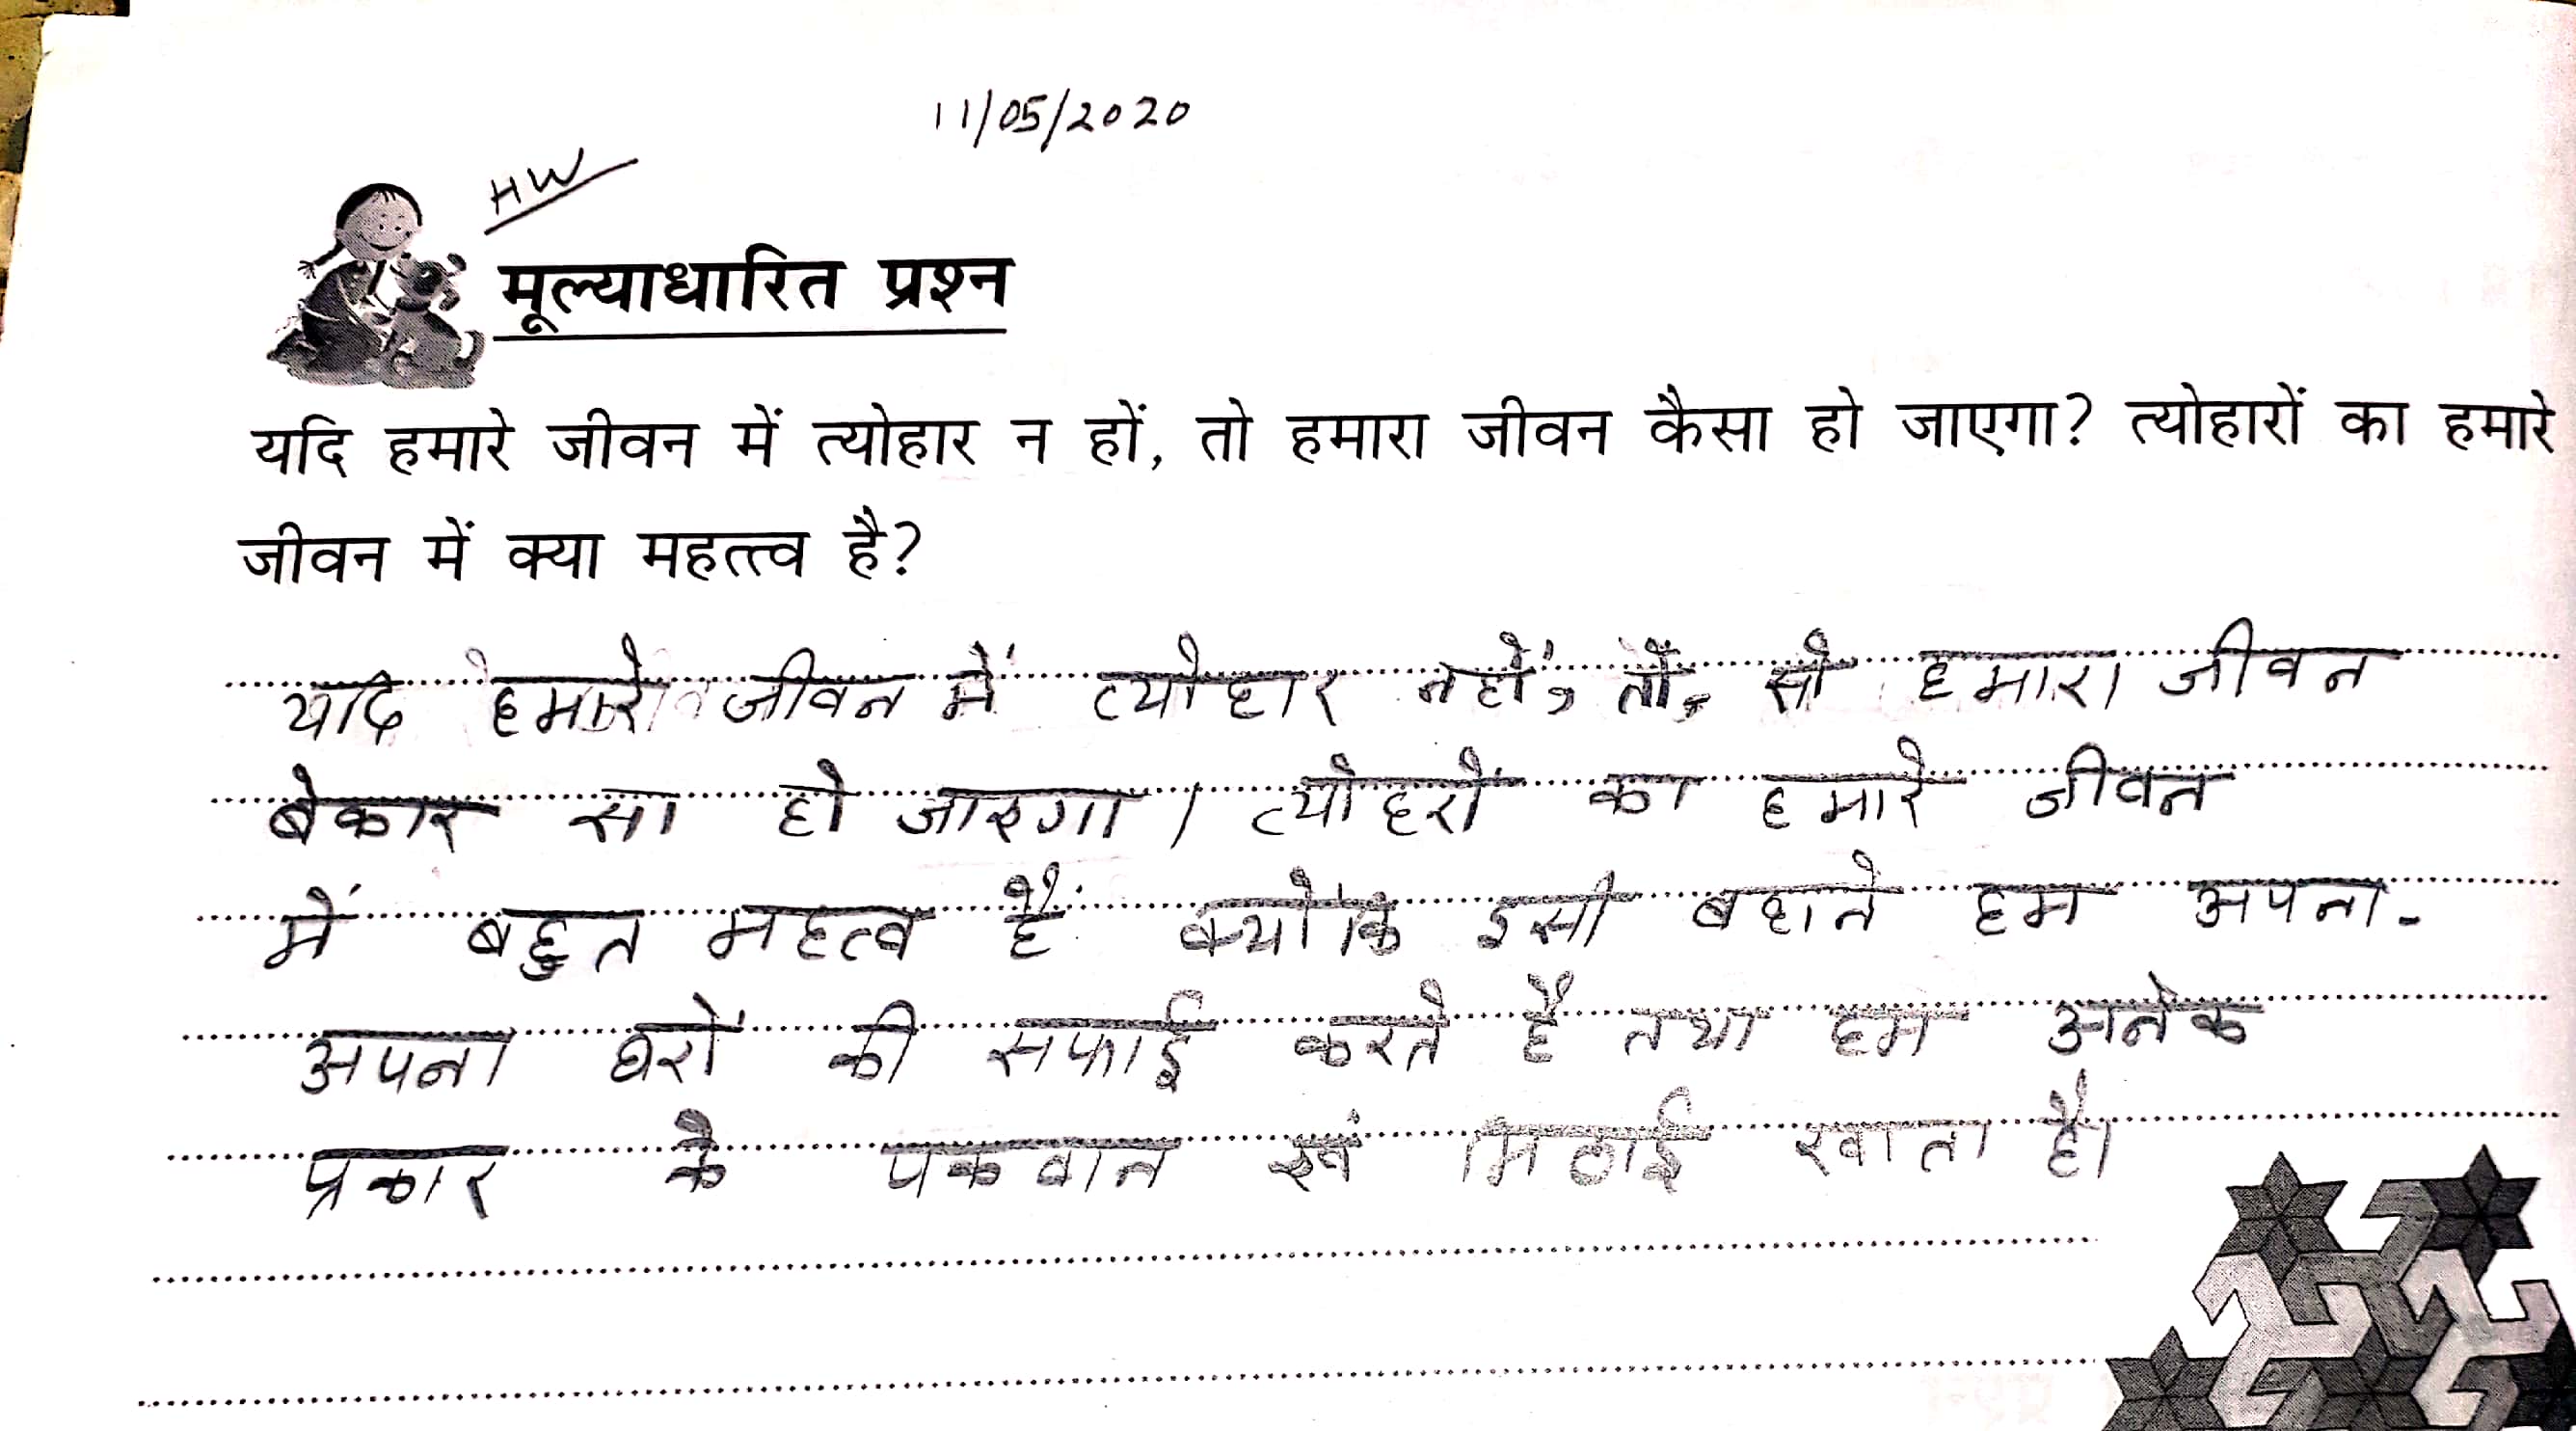 11/05/2020
HW
मूल्याधारित प्रश्न
यदि हमारे जीवन में त्योहार न हों, तो हमारा जीवन कैसा हो जाएगा? त्योहारों का हमारे
जीवन में क्या महत्त्व है?
यदि हमारे जीवन में त्योहार न हों, तों, सो हमारा जीवन
बेकार सा हो जाइगा। त्योहरों का हमारे जीवन
में बहुत महत्व हैं क्योंकि इसी बहाने हम अपना-
अपना घरों की सफाई करते हैं तथा हम अनेक
प्रकार के पकवान इवं मिठाई खाता है।